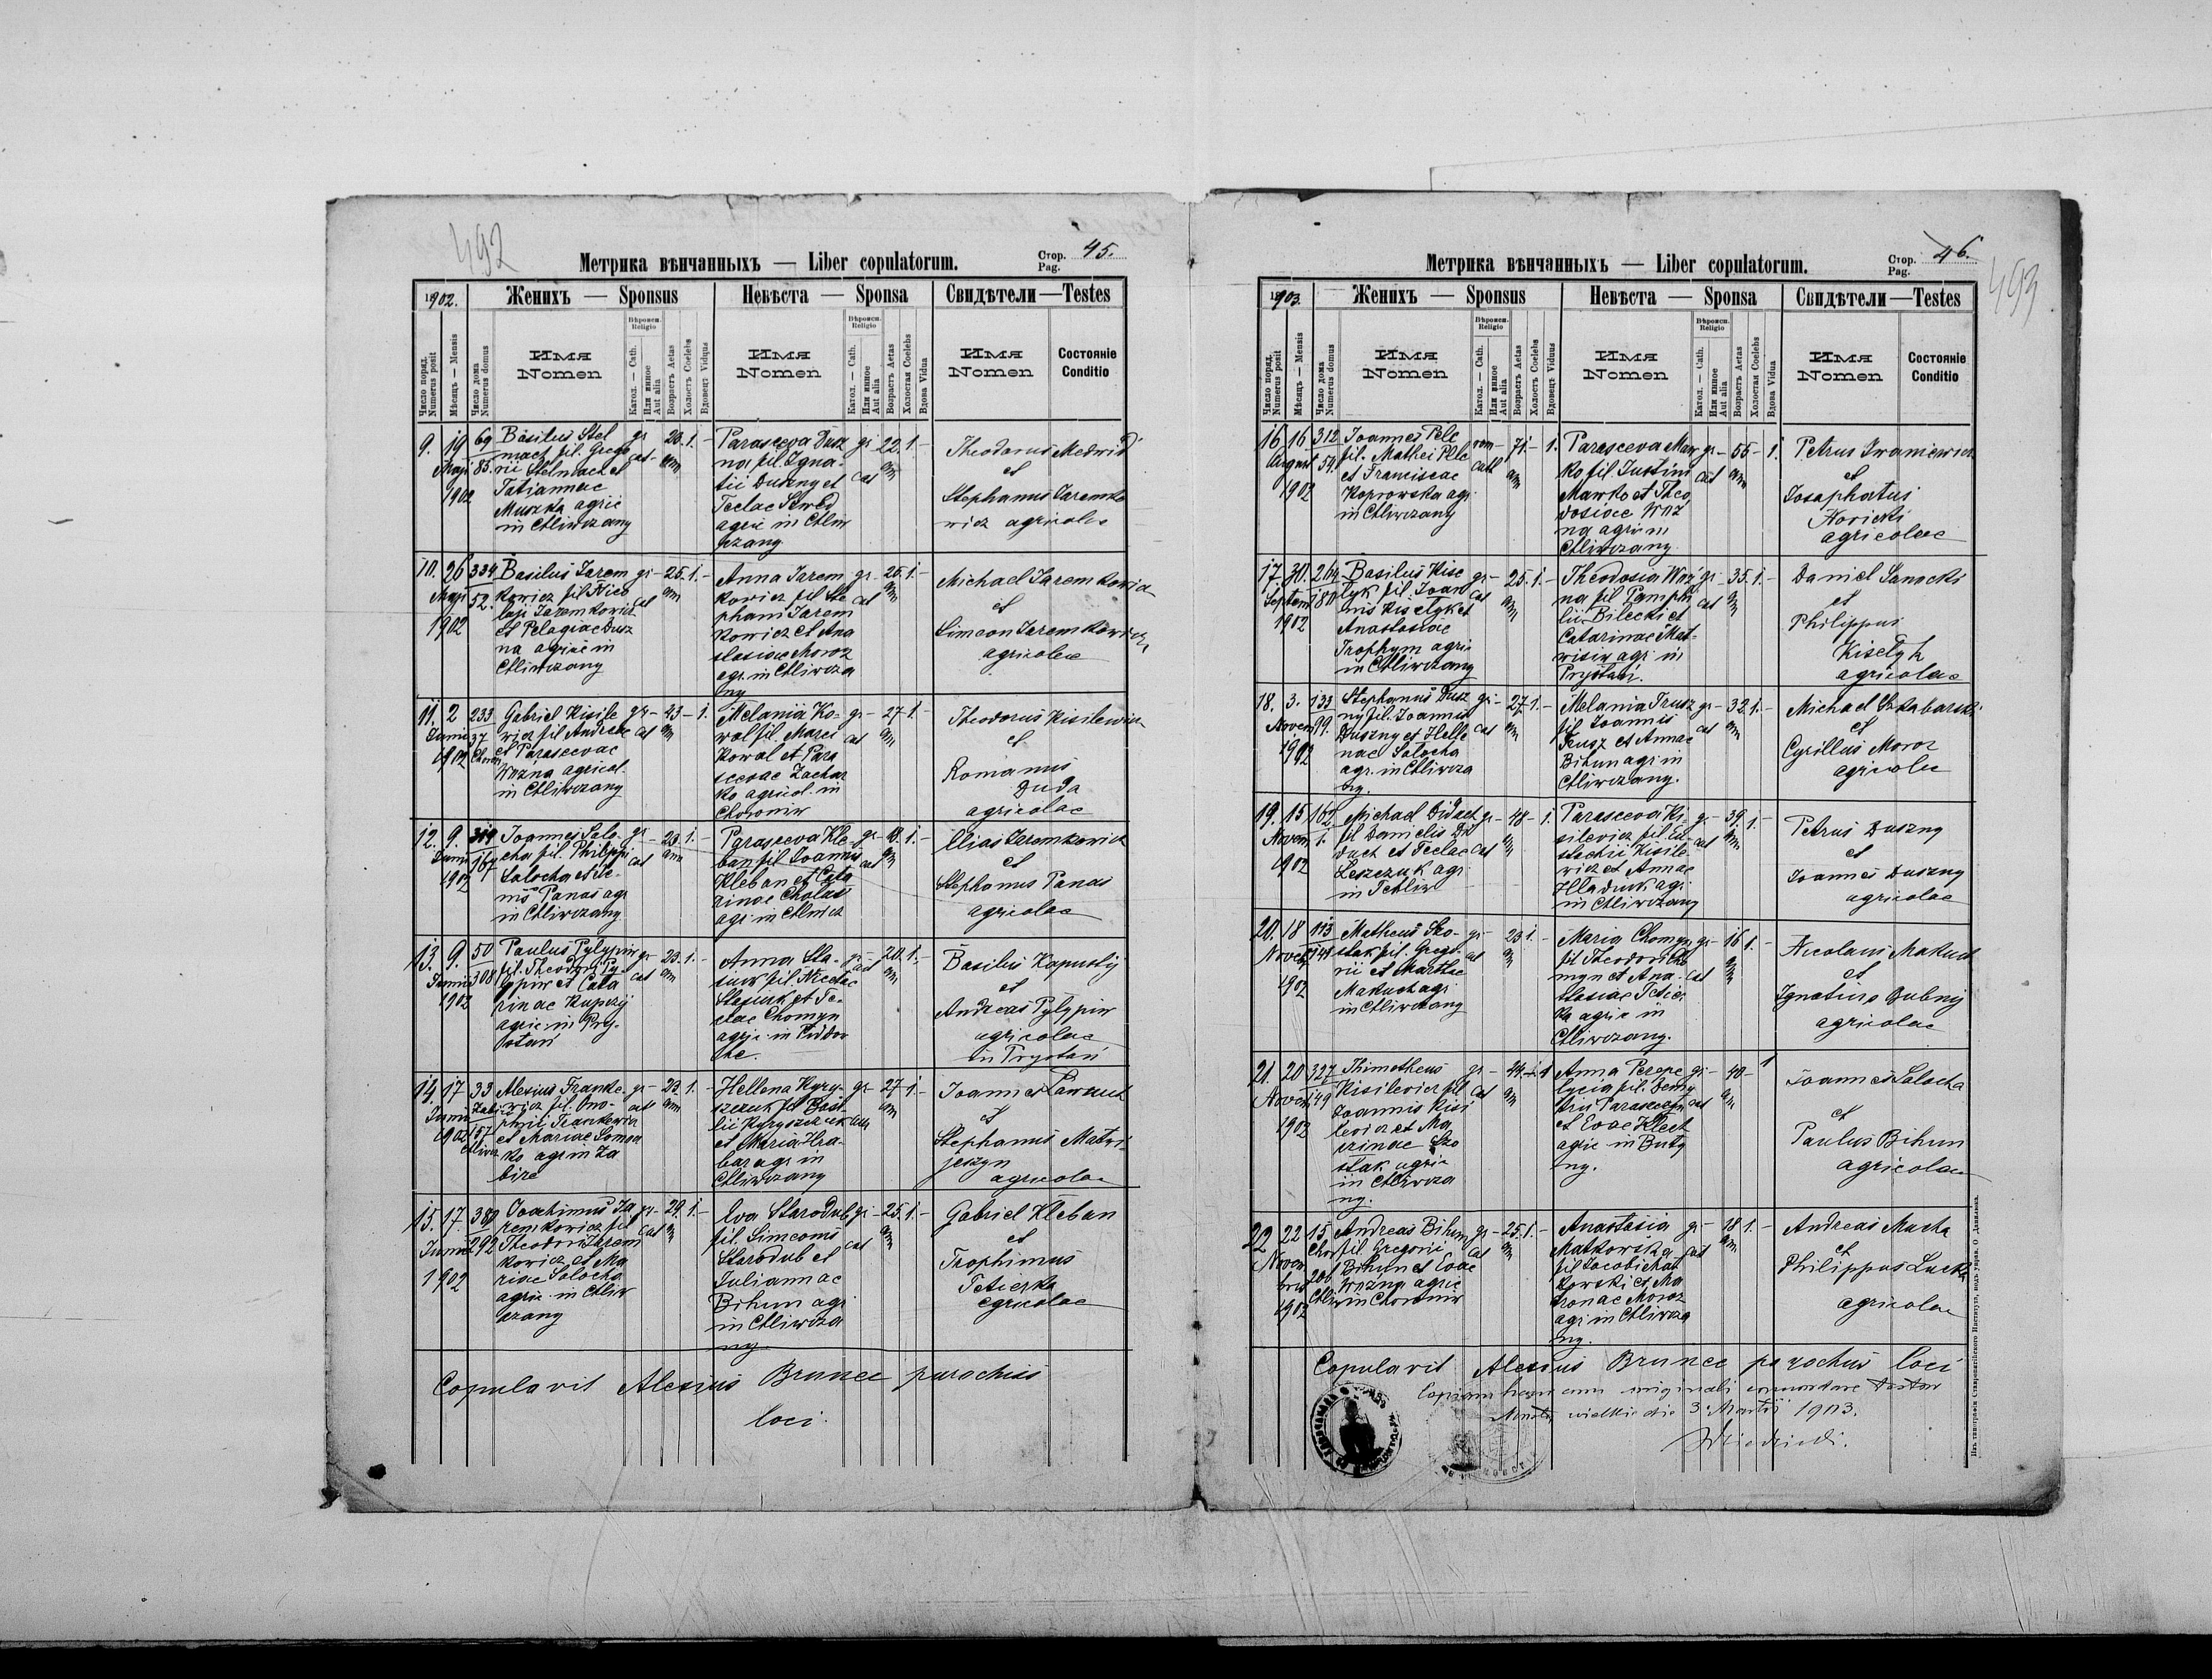 492
Метрика вѣнчанныхъ — Liber copulatorum.
Стор. Pag. 45.
1902.
Женихъ — Sponsus
Невѣста — Sponsa
Свидѣтели — Testes
Число поряд. Numerus posit
Мѣсяцъ — Mensis
Число дома Numerus domus
Имя Nomen
Вѣроисп. Religio
Катол. — Cath.
Или инное Aut alia
Возрастъ Aetas
Холостъ Coelebs
Вдовецъ Viduus
Имя Nomen
Вѣроисп. Religio
Катол. — Cath.
Или инное Aut alia
Возрастъ Aetas
Холостая Coelebs
Вдова Vidua
Имя Nomen
Состояніе Conditio
9. 19 Maji 1902
69 85.
Basilius Stel
mach fil. Grego
rii Stelmach et
Tatiannae
Muszka agric
in Chliwczany
gr cat 23. ann 1. -
Parasceva Dusz
na fil. Igna-
tii Duszny et
Teclae Szwed
agric in Chliw
czany
gr cat 22. ann 1. -
Theodorus Medwid
et
Stephanus Jaremko
wicz agricolae
10. 26 Maji 1902
334 52.
Basilius Jarem
kowicz fil Nico
lai Jaremkowicz
et Pelagiae Dusz
na agric in
Chliwczany
gr- cat 25. ann 1. -
Anna Jarem
kowicz fil Ste
phani Jarem
kowicz et Ana
stasiae Moroz
agr. in Chliwcza
ny
gr- cat 25. ann 1. -
Michael Jaremkowicz
et
Simeon Jaremkowicz
agricolae
11. 2 Junii 1902
233 37
Gabriel Kisile
wicz fil Andreae
et Parascevae
Wozna agricol.
in Chliwczany
gr- cat 43 ann - 1.
Melania Ko-
wal fil. Marci
Kowal et Para
scevae Zachar
ko agricol. in
Choroniw
gr- cat 27 ann 1. -
Theodorus Kisilewicz
et
Romanus
Duda
agricolae
12. 9. Junii 1902
319 167
Joannes Salo-
cha fil. Philippi
Salocha et
Panas agr
in Chliwczany
gr cat 23. ann 1. -
Parasceva Kle-
ban fil. Joannis
Kleban et Cata
rinae
agr. in
gr- cat 18. ann 1. -
Elias Jaremkowicz
et
Stephanus Panas
agricolae
13. 9. Junii 1902
50 308
Paulus Pylypiw
fil. Theodori Py-
lypiw et Cata
rinae
agric. in Pry-
stań
gr cat 23. ann 1. -
Anna Sta-
siuk fil. Nicetae
Stasiuk et Te-
clae Chomyn
agric in
gr- cat 20. ann 1. -
Basilius Kapustij
et
Andreas Pylypiw
agricolae
in Prystań
14. 17 Junii 1902
33 157
Alexius Franke-
wicz fil. Ono-
phrii Frankewicz
et Mariae
ko agr in Za
bire
gr- cat 23. ann 1. -
Hellena Kyry-
szczuk fil Basi-
lii Kyryszczuk
et Maria Hra-
bar agr in
Chliwczany
gr- 27 ann 1. -
Joannes
et
Stephanus Matwi-
jeszyn
agricolae
15. 17. Junii 1902
292
Joachimus Ja
remkowicz fil
Theodori Jarem
kowicz et Ma
riae Salocha
agric. in Chliw
czany
gr- cat 29. ann 1. -
Eva Starodub
fil. Simeonis
Starodub et
Juliannae
Bihun agr
in Chliwcza
ny
gr- cat 25. ann 1. -
Gabriel Kleban
et
Trophimus
Teterka
agricolae
Copulavit Alexius Brunec parochus
loci.
493
Метрика вѣнчанныхъ — Liber copulatorum.
Стор. Pag. 46.
1903.
Женихъ — Sponsus
Невѣста — Sponsa
Свидѣтели — Testes
Число поряд. Numerus posit
Мѣсяцъ — Mensis
Число дома Numerus domus
Имя Nomen
Вѣроисп. Religio
Катол. — Cath.
Или инное Aut alia
Возрастъ Aetas
Холостъ Coelebs
Вдовецъ Viduus
Имя Nomen
Вѣроисп. Religio
Катол. — Cath.
Или инное Aut alia
Возрастъ Aetas
Холостая Coelebs
Вдова Vidua
Имя Nomen
Состояніе Conditio
16 16 August 1902
312 54.
Joannes Pelc
fil. Mathei Pelc
et Franciscae
Koprowska agr.
in Chliwczany
rom- cath 71. ann - 1.
Parasceva Maw
ko fil. Justini
Mawko et Theo
dosiae Woz
na agric in
Chliwczany
gr- cat 55 ann - 1.
Petrus Iwaniewicz
et
Josaphatus
Nowicki
agricolae
17. 30. Septem 1902
264 180
Basilius Kise
lyk fil. Joan
nis Kiselyk et
Anastasiae
Trophym agric
in Chliwczany
gr- cat 25. ann 1. -
Theodosia Woź
na fil Pamphi
lii Bilecki et
Catarinae Mat-
wisiw agr. in
Prystań.
gr- cat 35. ann 1. -
Daniel Sanocki
et
Philippus
Kiselyk
agricolae
18. 3. Novem 1902
133 99.
Stephanus Dusz
ny fil. Joannis
Duszny et Helle
nae Salocha
agr. in Chliwcza
ny.
gr- cat 27. ann 1. -
Melania Trusz
fil Joannis
Trusz et Annae
Bihun agr in
Chliwczany.
gr- cat 32. ann 1. -
Michael Szkabarski
et
Cyrillus Moroz
agricolae
19. 15 Novem 1902
162. 1.
Michael Diduch
fil Danielis Di
duch et Teclae
Leszczuk agr
in
gr- cat 48 ann - 1.
Parasceva Ki-
silewicz fil Eu-
stachii Kisile
wicz et Annae
Hladiuk agr.
in Chliwczany
gr- cat 39. ann 1. -
Petrus Duszny
et
Joannes Duszny
agricolae
20. 18 Novem 1902
113 148
Matheus Szo-
stak fil. Grego-
rii et Marthae
Makuch agr
in Chliwczany
gr- cat 23 ann 1. -
Maria Chomyn
fil Theodori Cho
myn et Ana-
stasiae Teter
ka agric in
Chliwczany.
gr- cat 16 ann 1. -
Nicolaus Makuch
et
Ignatius Dubnij
agricolae
21. 20 Novem 1902
327 149
Thimotheus
Kisilewicz fil
Joannis Kisi
lewicz et Ma
rinae Szo
stak agric
in Chliwcza
ny.
gr- cat 44. ann - 1
Anna Pere
fil. Demy
trii
et Evae
agric in Buty
ny.
gr- cat 40 ann - 1
Joannes Salocha
et
Paulus Bihun
agricolae
22 22 Novem bris 1902
15 Chor 206 Chliw
Andreas Bihun
fil. Gregorii
Bihun et Evae
Wozna agric
in Choroniw
gr- cat 25. ann 1. -
Anastasia
Matkowska
fil Jacobi Mat
kowski et Ma
tronae Moroz
agr in Chliwcza
ny.
gr- cat 18 ann 1. -
Andreas Mucha
et
Philippus Lucka
agricolae
Copulavit Alexius Brunec parochus loci
Copiam hanc cum originali concordare testor
Mosty wielkie die 3. Martii 1903.
Изъ типографіи Ставропигійского Института, подъ управ. О. Данилюка.